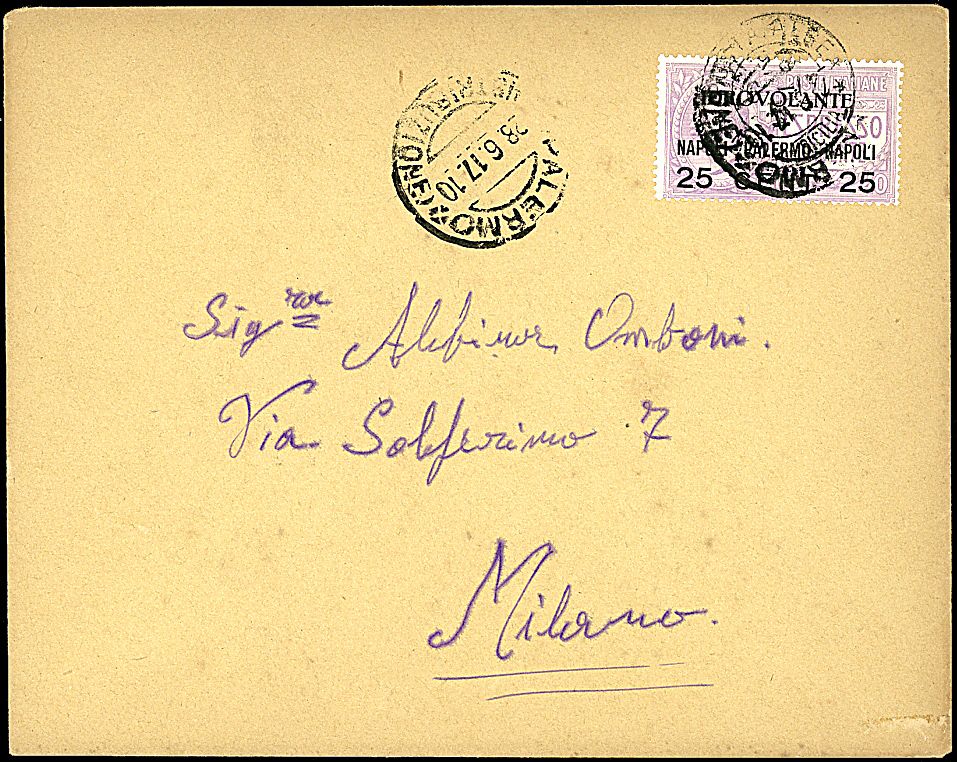 POSTE ITALIANE
IDROVOLANTE
NAPOLI - PALERMO - NAPOLI
25 CENT. 25
PALERMO
28.6.17.10
DISTRIBUZIONE
Sig.re Omboni.
Via Solferino 7
Milano.